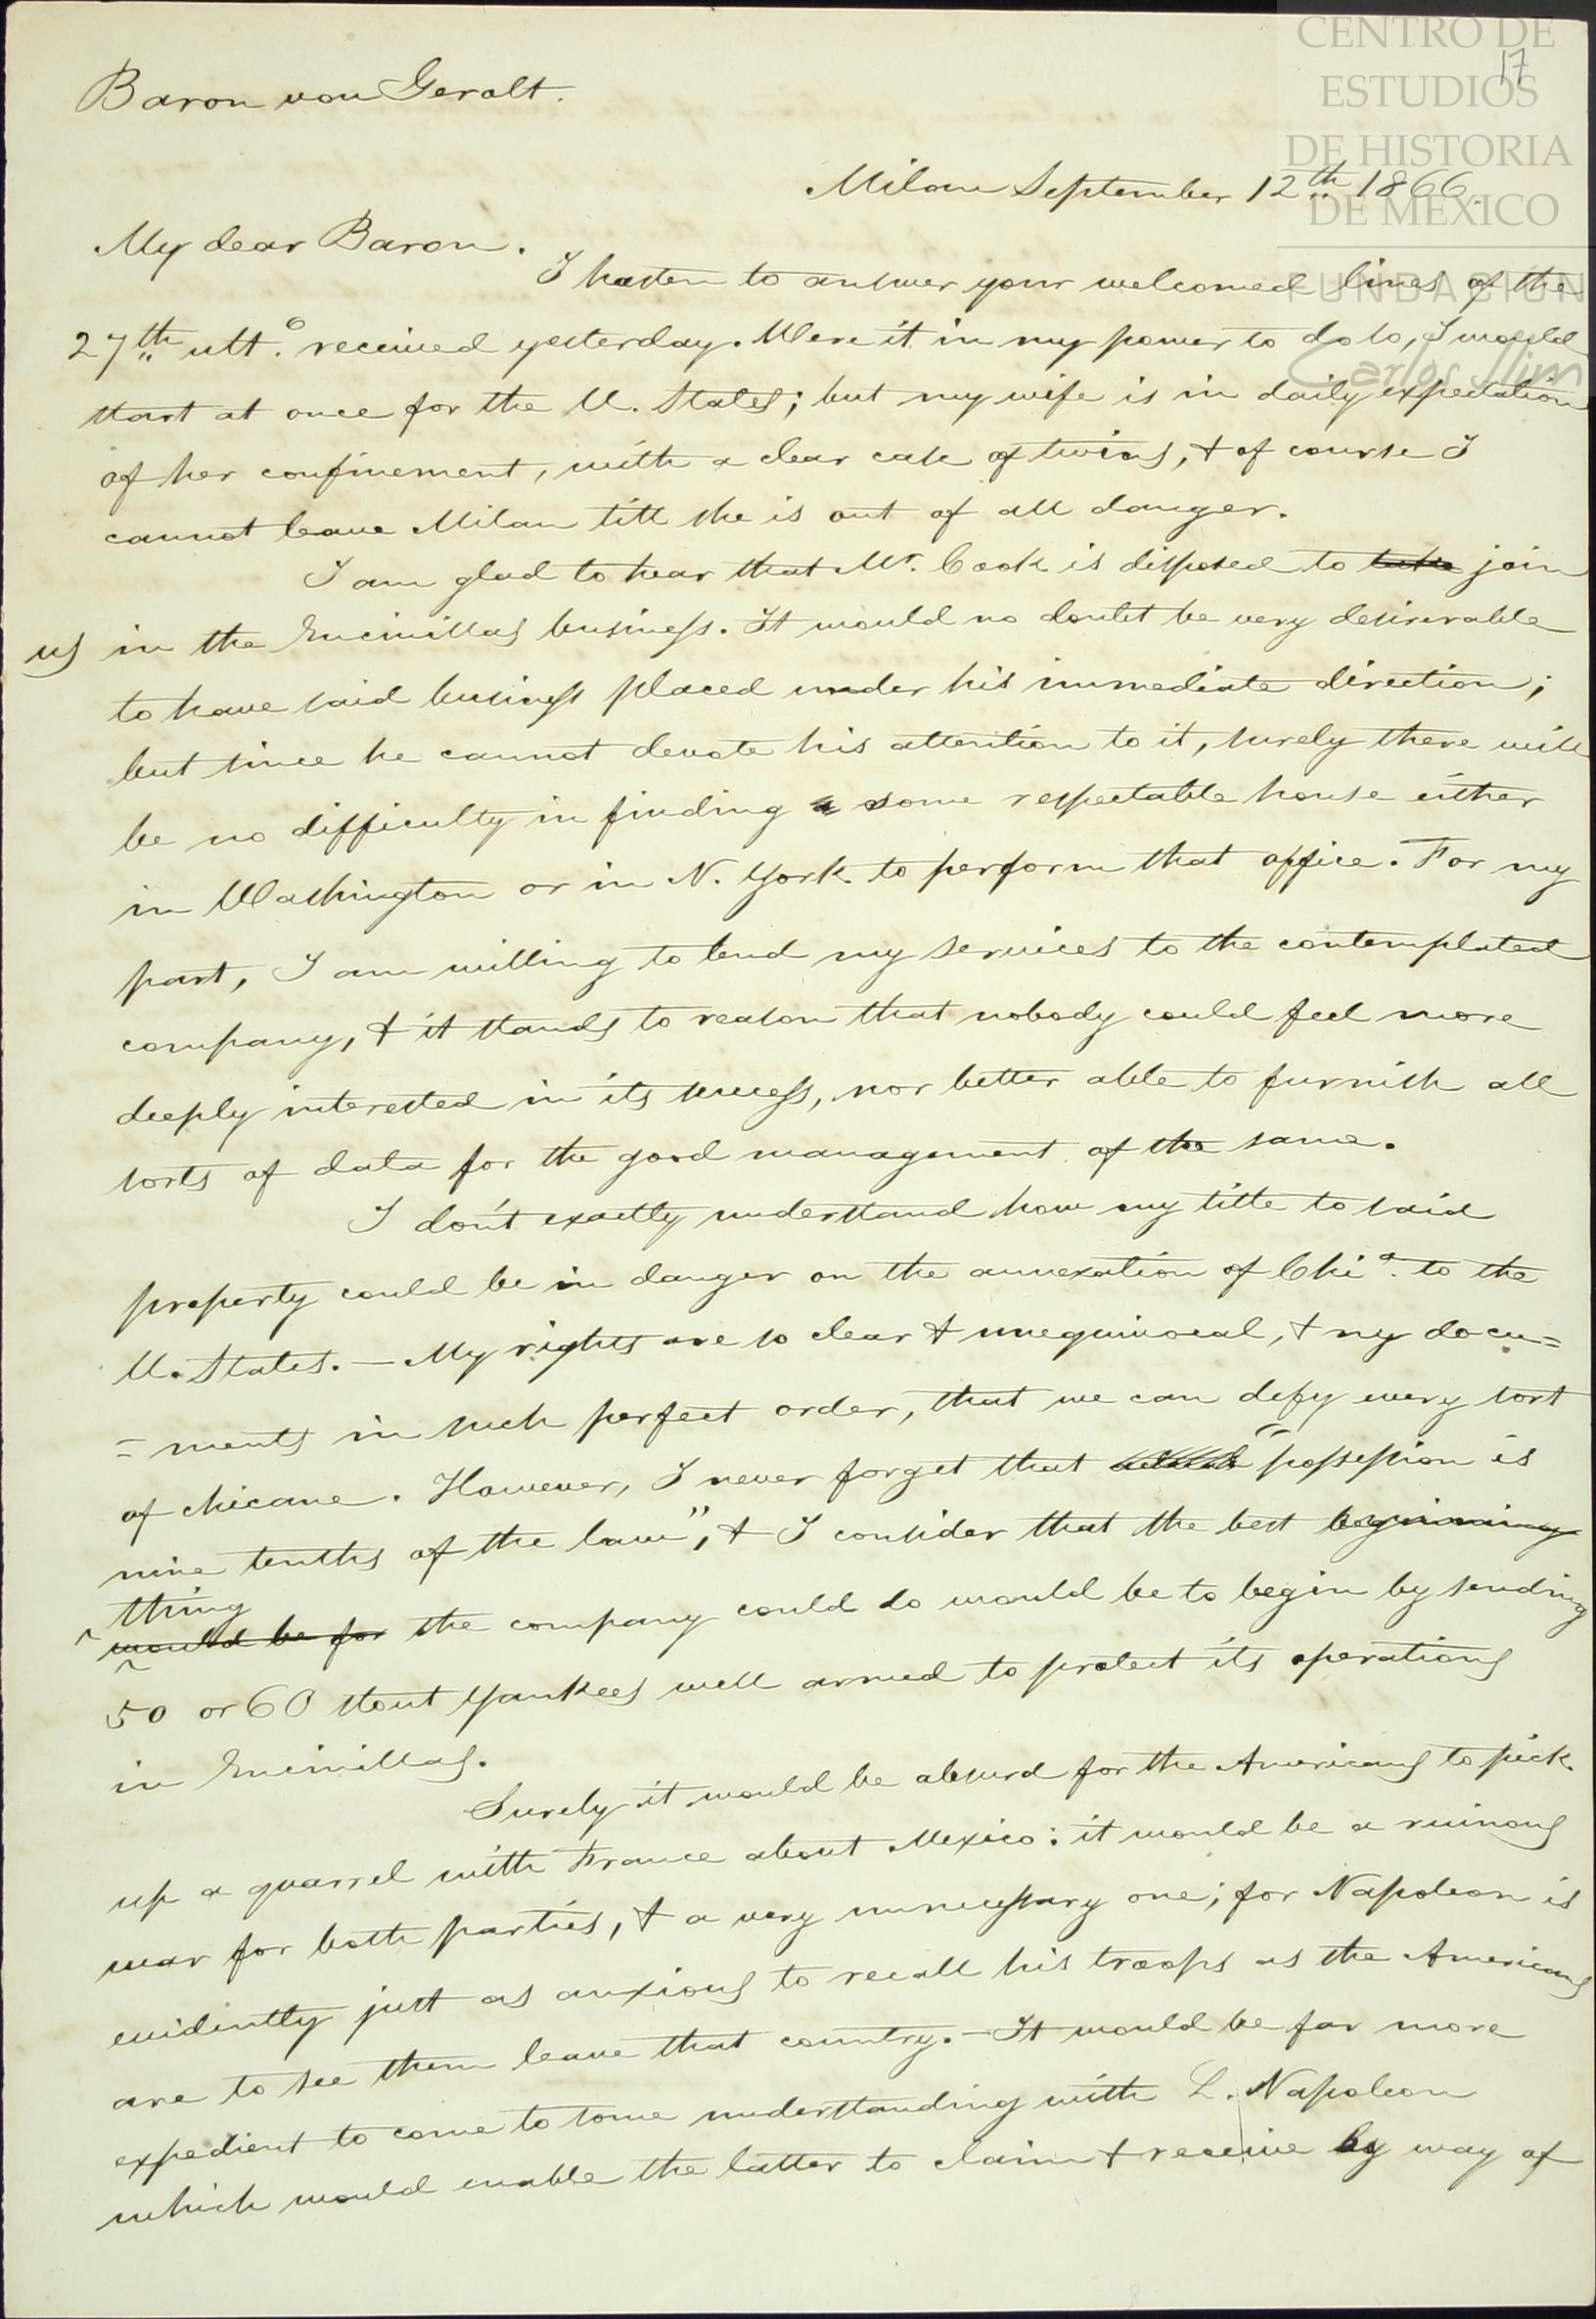 CENTRO DE
ESTUDIOS
DE HISTORIA
DE MÉXICO
FUNDACIÓN
Carlos Slim
17
Baron von Gerolt.
Milan September 12th 1866.
My dear Baron.
I hasten to answer your welcomed lines of the
27th ult.o received yesterday. Were it in my power to do so, I would
start at once for the U. States; but my wife is in daily expectation
of her confinement, with a clear case of twins, & of course I
cannot leave Milan till she is out of all danger.
I am glad to hear that Mr. Cook is disposed to take join
us in the Encinillas business. It would no doubt be very desirerable
to have said business placed under his immediate direction;
but since he cannot devote his attention to it, surely there will
be no difficulty in finding a some respectable house either
in Washington or in N. York to perform that office. For my
part, I am willing to lend my services to the contemplated
company, & it stands to reason that nobody could feel more
deeply interested in its success, nor better able to furnish all
sorts of data for the good management of the same.
I don't exactly understand how my title to said
property could be in danger on the annexation of Chi.a to the
U. States. — My rights are so clear & unequivocal, & my docu=
=ments in such perfect order, that we can defy every sort
of chicane. However, I never forget that "possession is
nine tenths of the law", & I consider that the best beginning
thing
would be for the company could do would be to begin by sending
50 or 60 stout Yankees well armed to protect its operations
in Encinillas.
Surely it would be absurd for the Americans to pick
up a quarrel with France about Mexico: it would be a ruinous
war for both parties, & a very unnecessary one; for Napoleon is
evidently just as anxious to recall his troops as the Americans
are to see them leave that country. — It would be far more
expedient to come to some understanding with L. Napoleon
which would enable the latter to claim & receive by way of